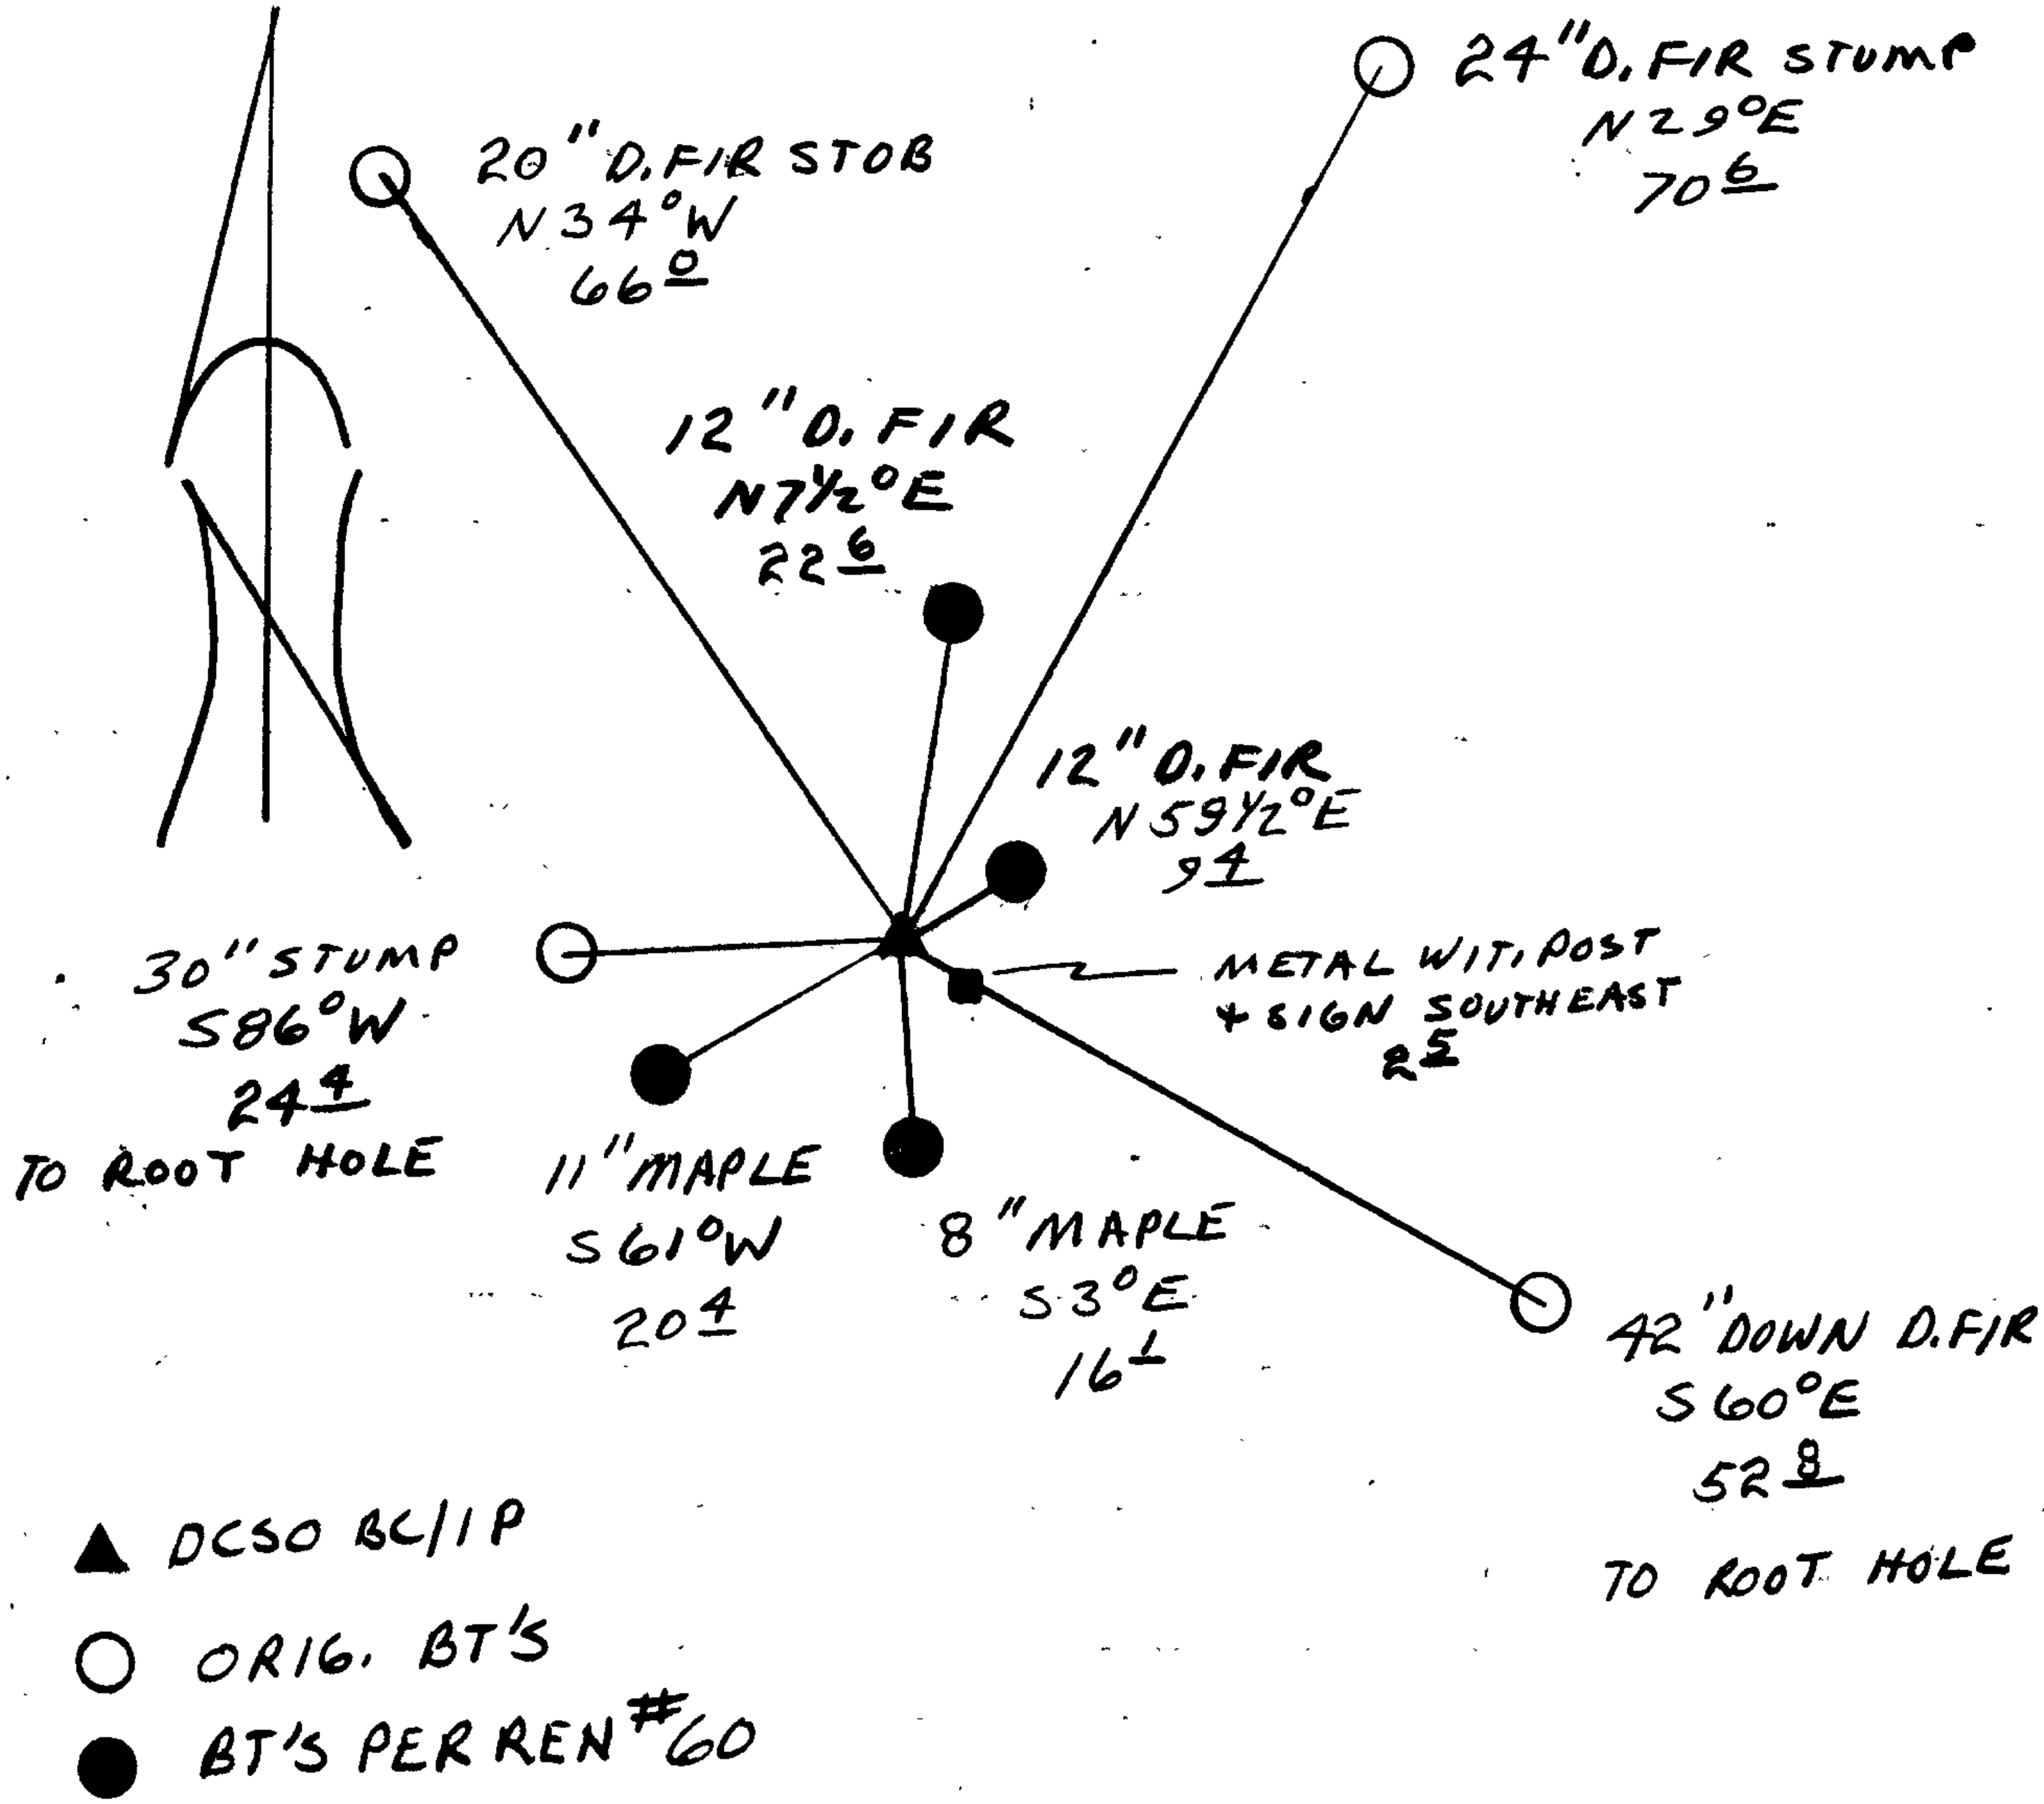 24" D. FIR STUMP
N 29° E
70 6
20" D. FIR STOB
N 34° W
66 0
12" D. FIR
N 7 1/2° E
22 6
12" D. FIR
N 59 1/2° E
9 4
METAL WIT. POST
& SIGN SOUTHEAST
2 5
30" STUMP
S 86° W
24 4
TO ROOT HOLE
11" MAPLE
S 61° W
20 4
8" MAPLE
S 3° E
16 1
42" DOWN D. FIR
S 60° E
52 8
TO ROOT HOLE
DCSO BC/IP
ORIG. BT'S
BT'S PER REN #60